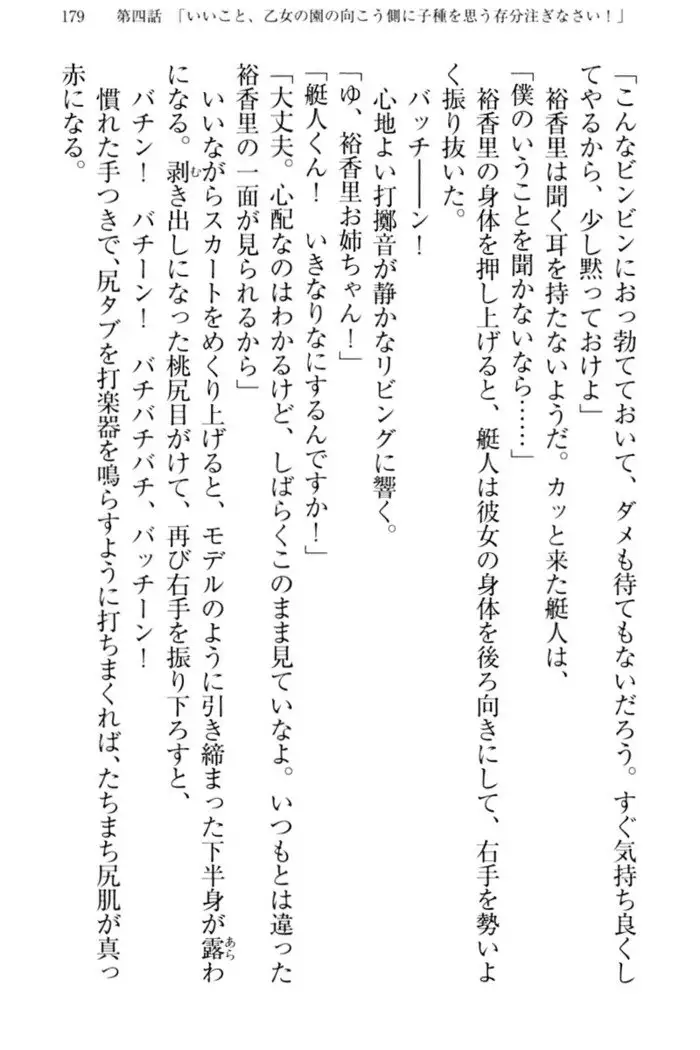 179　第四話　「いいこと、乙女の園の向こう側に子種を思う存分注ぎなさい！」
「こんなビンビンにおっ勃てておいて、ダメも待てもないだろう。すぐ気持ち良くし
てやるから、少し黙っておけよ」
裕香里は聞く耳を持たないようだ。カッと来た艇人は、
「僕のいうことを聞かないなら……」
裕香里の身体を押し上げると、艇人は彼女の身体を後ろ向きにして、右手を勢いよ
く振り抜いた。
バッチ――ン！
心地よい打擲音が静かなリビングに響く。
「ゆ、裕香里お姉ちゃん！」
「艇人くん！　いきなりなにするんですか！」
「大丈夫。心配なのはわかるけど、しばらくこのまま見ていなよ。いつもとは違った
裕香里の一面が見られるから」
いいながらスカートをめくり上げると、モデルのように引き締まった下半身が露あらわ
になる。剥むき出しになった桃尻目がけて、再び右手を振り下ろすと、
バチン！　バチーン！　バチバチバチ、バッチーン！
慣れた手つきで、尻タブを打楽器を鳴らすように打ちまくれば、たちまち尻肌が真っ
赤になる。